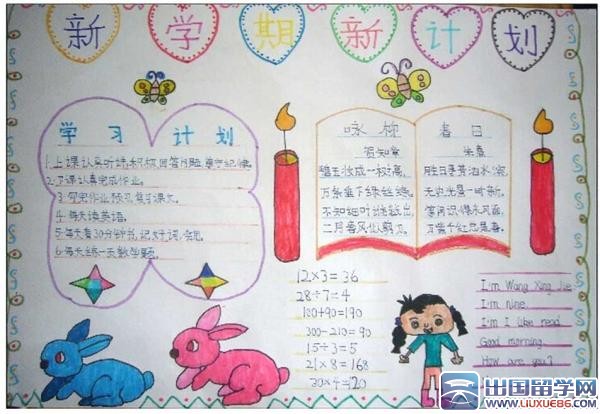 新学期新计划
学习计划
1.上课认真听讲,积极回答问题,遵守纪律。
2.下课认真完成作业。
3.写完作业预习、复习课文。
4.每天读英语。
5.每天看30分钟书,记好词、好句。
6.每天练一页数学题。
咏柳
贺知章
碧玉妆成一树高,
万条垂下绿丝绦。
不知细叶谁裁出,
二月春风似剪刀。
春日
朱熹
胜日寻芳泗水滨,
无边光景一时新。
等闲识得东风面,
万紫千红总是春。
12×3=36
28÷7=4
100+90=190
300-210=90
15÷3=5
21×8=168
30×4=120
I'm Wang Xing Jie
I'm nine.
I'm I like read
Good morning.
How are you?
出国留学网
www.liuxue86.com